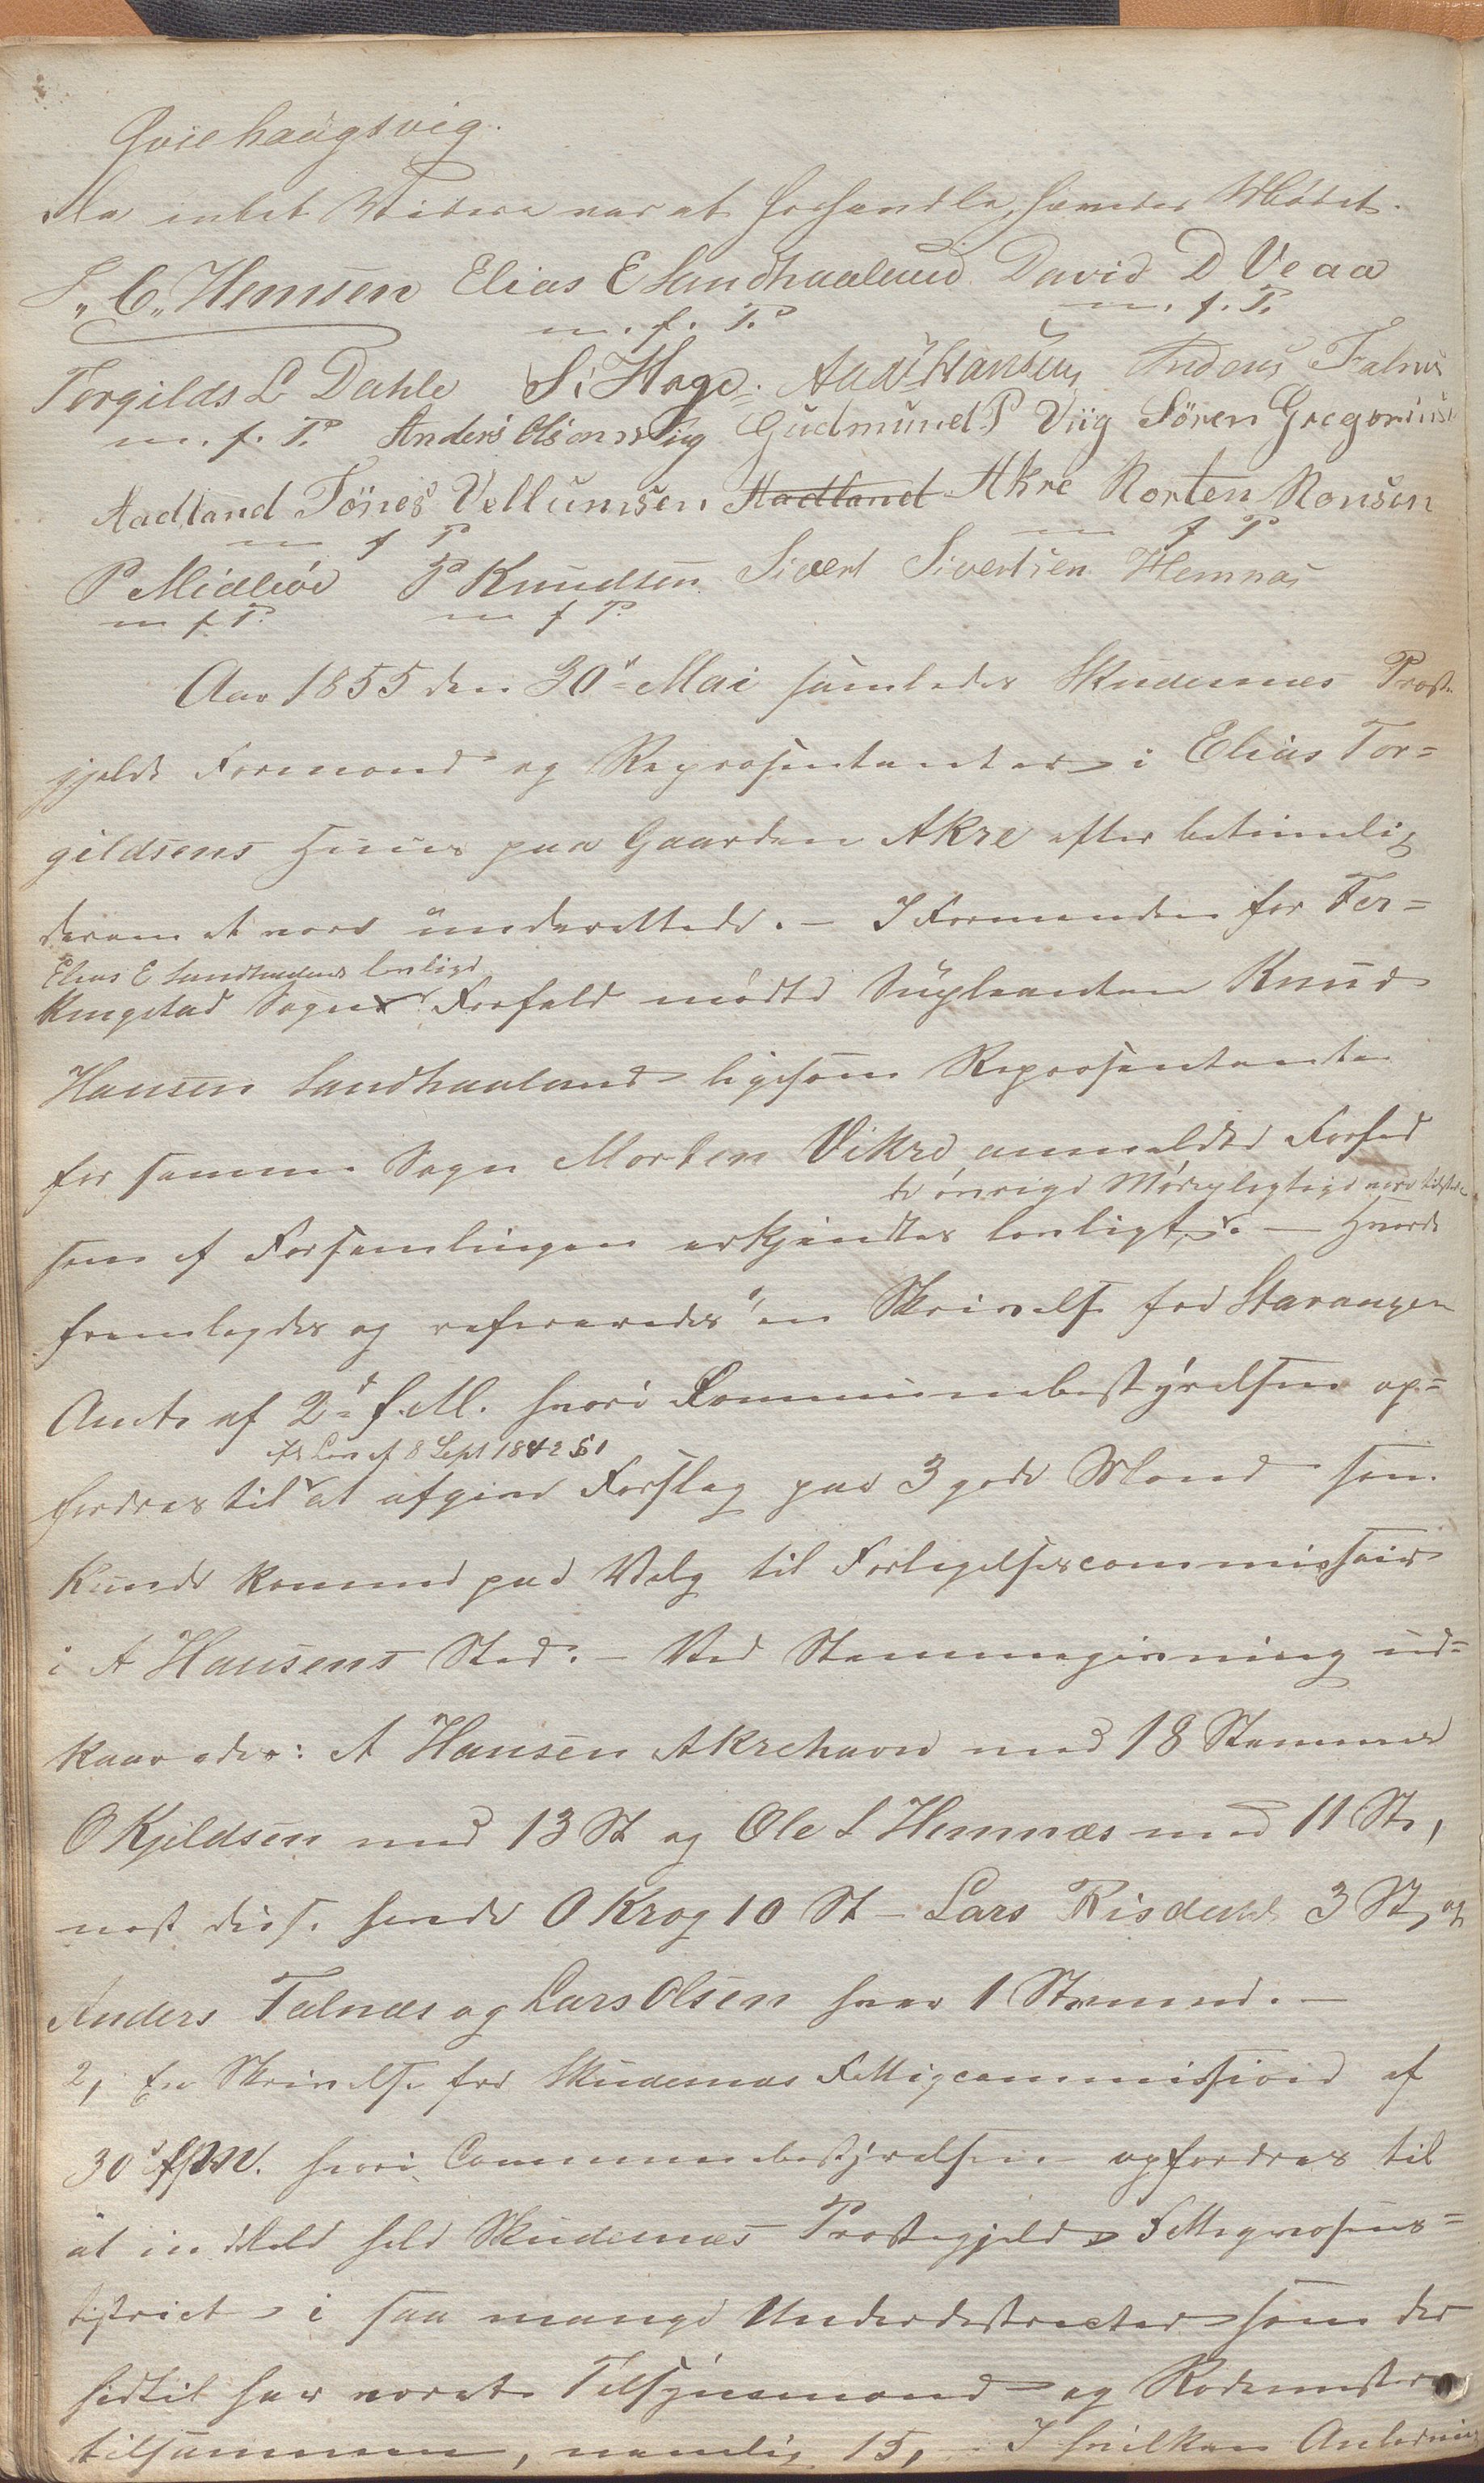 Qvielhaugsvig.
Da intet Videre var at forhandle, hævedes Mødet.
S. C. Hemsen Elias E Sandhaaland David D Veaa
m. f. P. m. f. P.
Torgilds L Dahle S. Hage. Aad Hansen Anders Falnæs
m. f. P. Anders Olsen Viig Gudmund P Viig Sören Gregoriusen
Aadland Tönes Vellumsen Aadland Akre Morten Monsen
m f P m f P
P Midbøe P Knudsen Sivert Sivertsen Hemnæs
m f P. m f P.
Aar 1855 den 30te Mai samledes Skudesnæs Præste-
gjelds Formænd og Repræsentanter i Elias Tor-
gildsens Huus paa Gaarden Akre efter betimelig
derom at være underettede. – I Formanden for Fer-
Elias E Sandhaalands lovlige
kingstad Sogns Forfald mødte Supleanten Knud
Hansen Sandhaaland ligesom Repræsentanten
for samme Sogn Morten Vikre anmeldte Forfald
de øvrige Mødepligtige vare tilstede
som af Forsamlingen erkjendtes lovligt. – Hvorda
fremlagdes og refereredes en Skrivelse fra Stavanger
Amt af 2d f. M. hvori Kommunebestyrelsen op-
efter Lov af 8 Sept 1842 § 1
fordres til at afgive Forslag paa 3 gode Mænd som
kunde komme paa Valg til Forligelsescommissair
i A Hansens Sted. – Ved Stemmegivning ud-
kaaredes: A Hansen Akrehavn med 18 Stemmer
O Kjeldsen med 13 St og Ole L Hemnæs med 11 St,
næst disse havde O Krog 10 St – Lars Risdahl 3 St, og
Anders Falnæs og Lars Olsen hver 1 Stemme. –
2, En Skrivelse fra Skudesnæs Fattigcommission af
30d f. M. hvori Communebestyrelsen opfordres til
at inddele hele Skudesnæs Præstegjelds Fattigvæsens-
district i saa mange Underdistricter som der
hidtil har været Tilsynsmænd og Rodemestere
tilsammen, nemlig 15, I hvilken Anledning